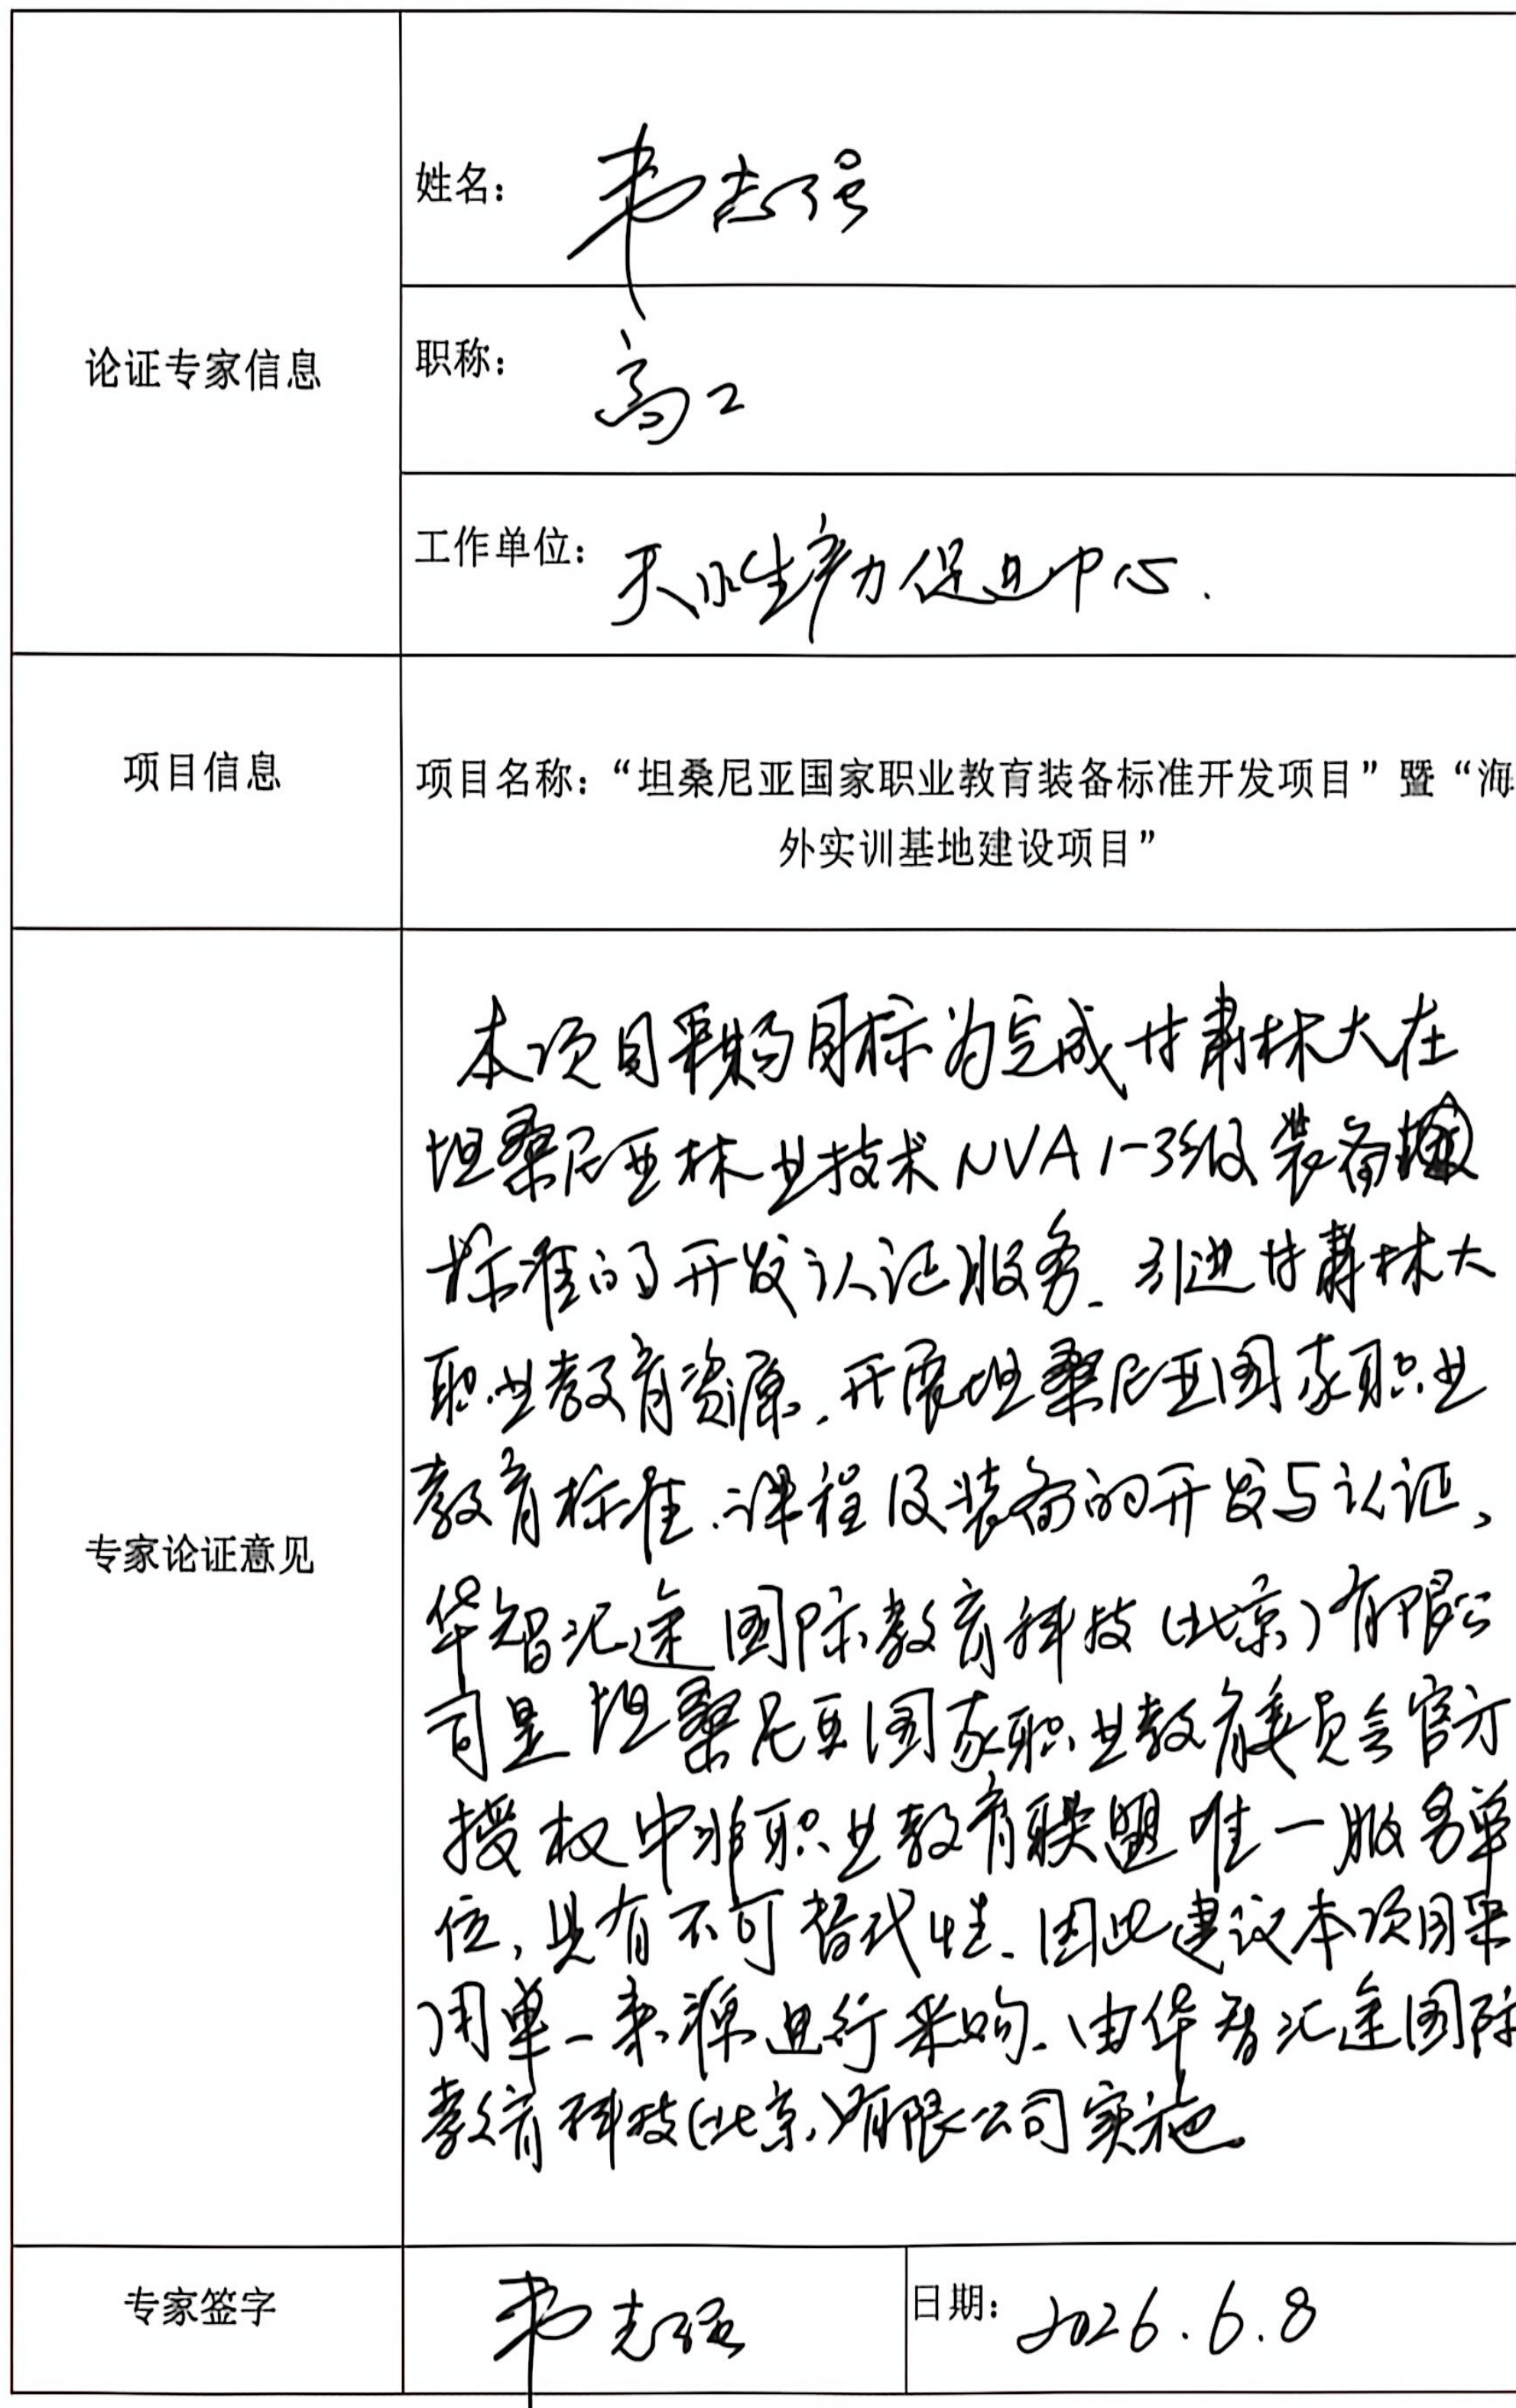 姓名：韦志强
职称：高工
论证专家信息
工作单位：天水生产力促进中心.
项目信息
项目名称：“坦桑尼亚国家职业教育装备标准开发项目”暨“海
外实训基地建设项目”
专家论证意见
本项目采购目标为完成甘肃林大在
坦桑尼亚林业技术NVA1-3级装备
标准的开发认证服务、引进甘肃林大
职业教育资源，开展坦桑尼亚国家职业
教育标准、课程及装备的开发与认证，
华智汇途国际教育科技（北京）有限公
司是坦桑尼亚国家职业教育委员会官方
授权中非职业教育联盟唯一服务单
位，具有不可替代性、因此建议本项目采
用单一来源进行采购、由华智汇途国际
教育科技（北京）有限公司实施。
专家签字
韦志强
日期：2026.6.8